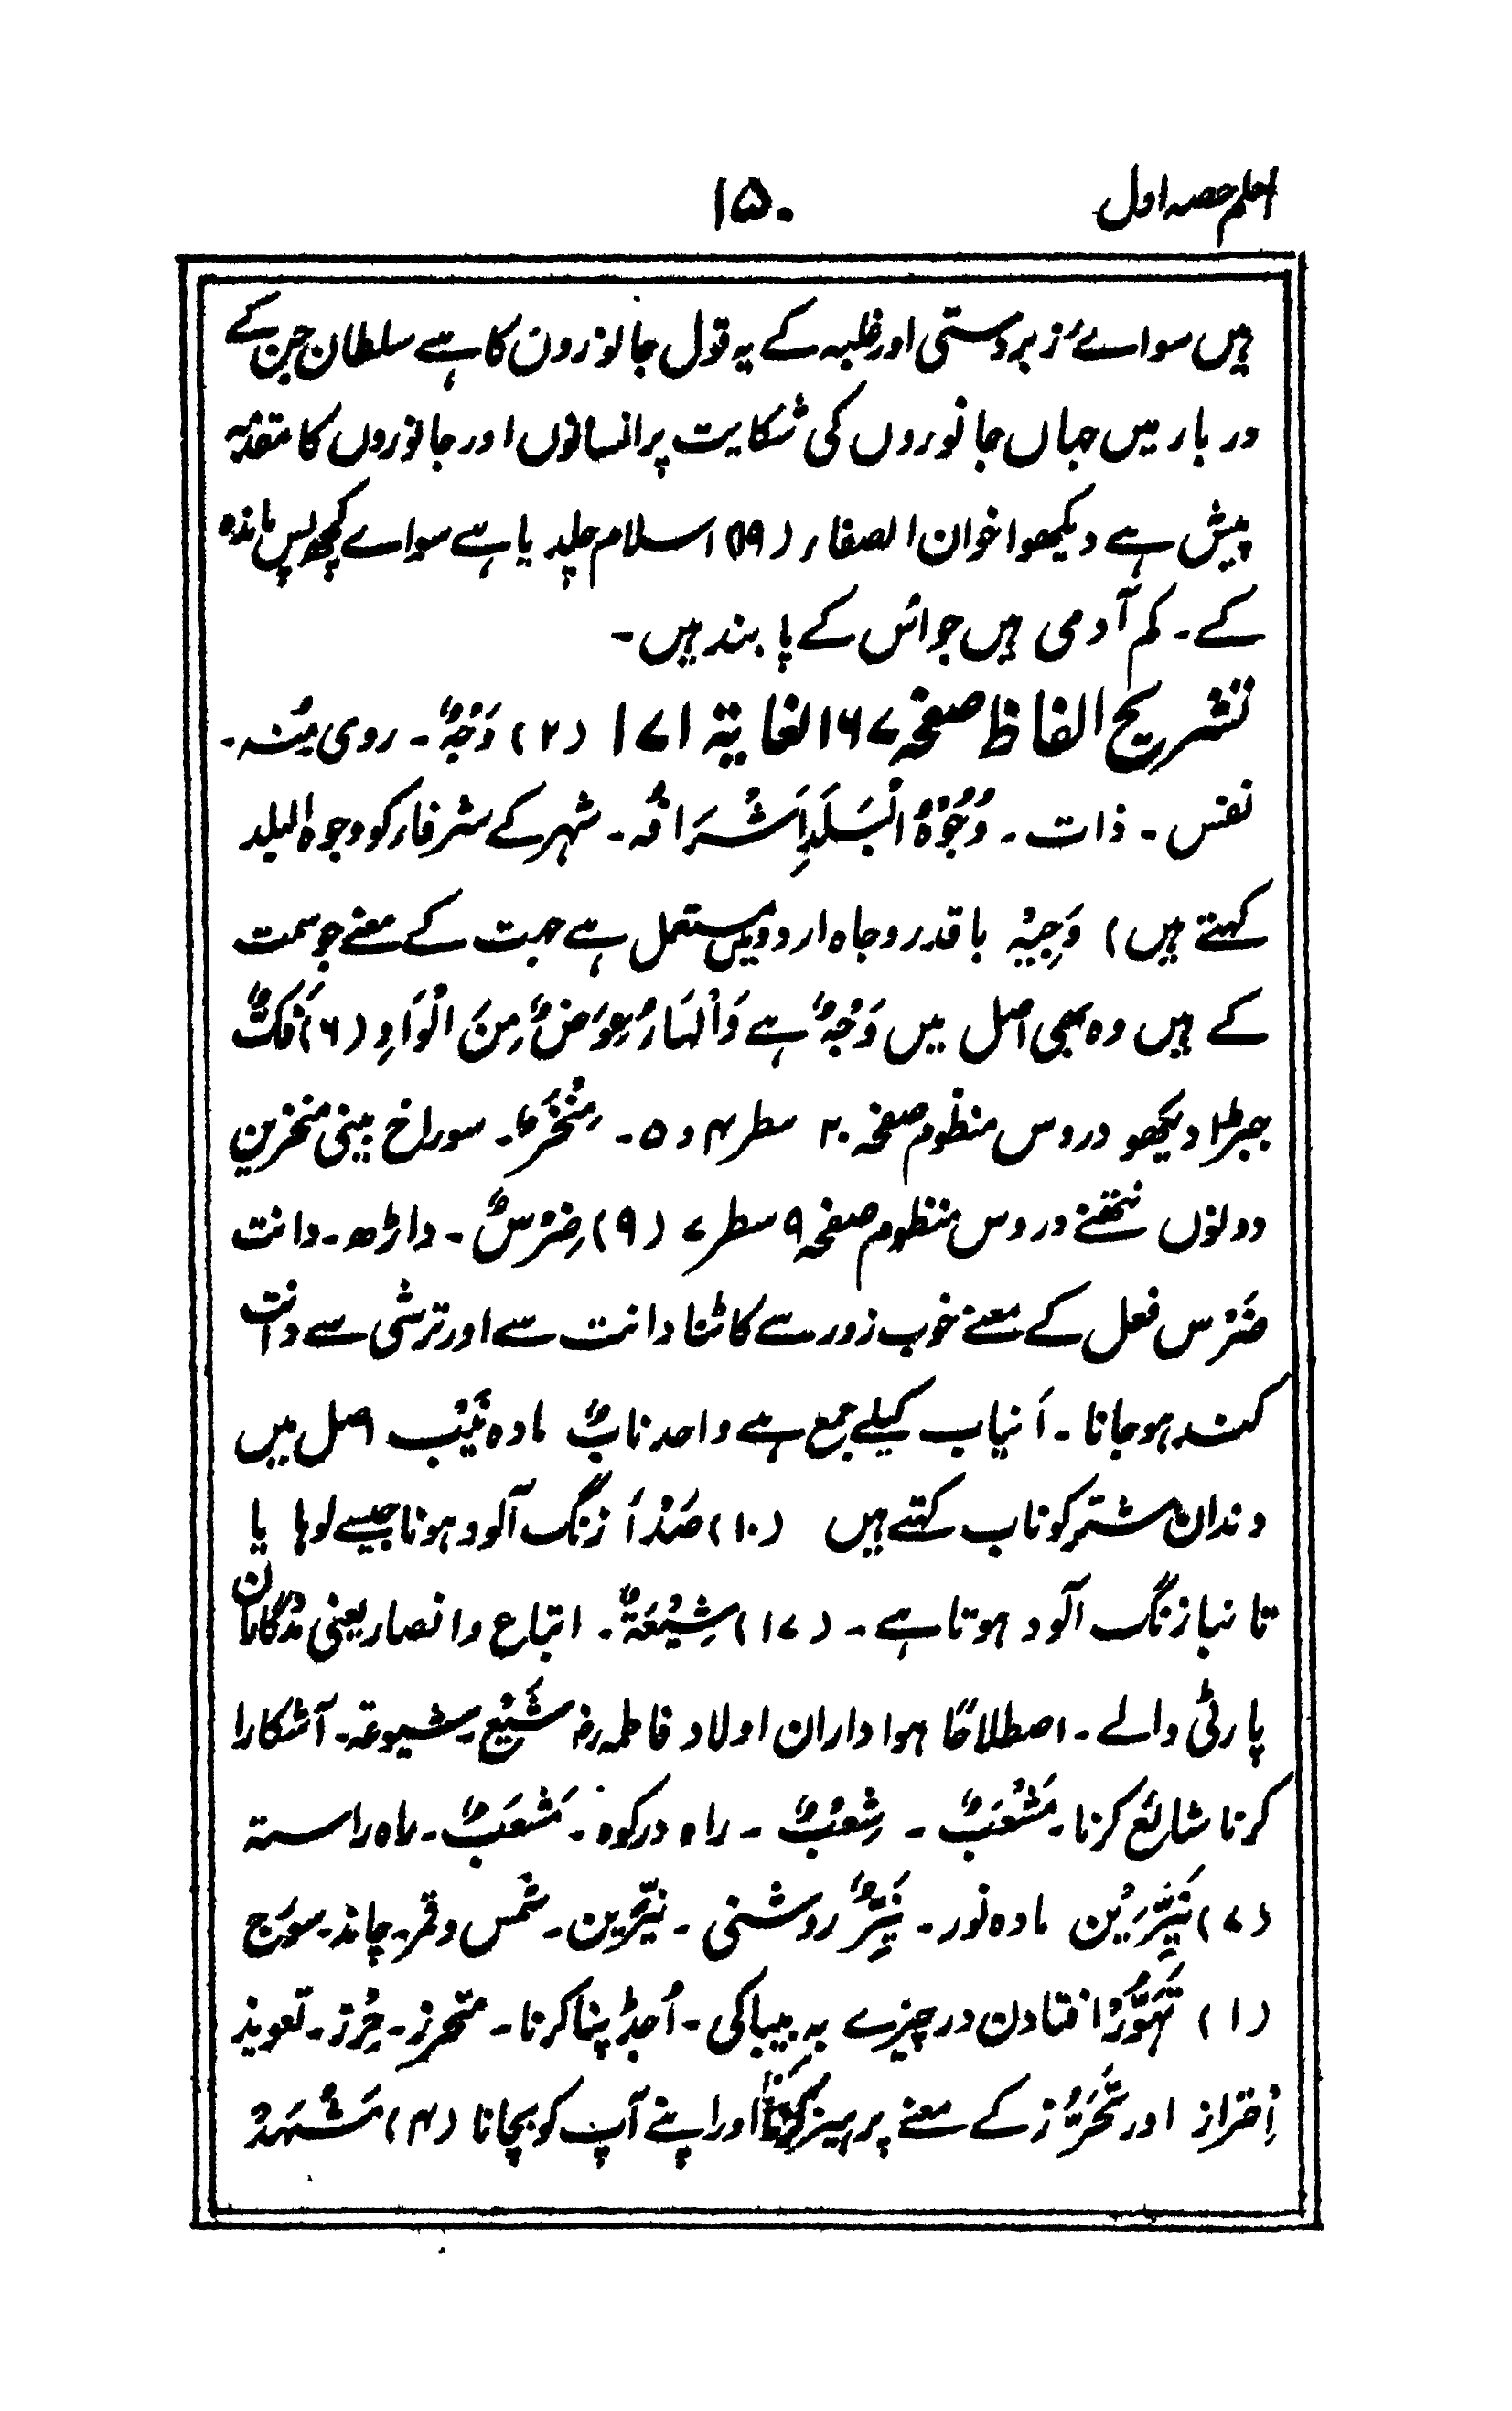 اعلم حصہ اول
۱۵۰
ہیں سواے زبردستی اور غلبہ کے یہ قول جانورون کا ہے سلطان جن کے
دربار میں جہاں جانوروں کی شکایت پر انسانوں اور جانوروں کا مقدمہ
پیش ہے دیکھو اخوان الصفاء (۱۹) اسلام چلدیا ہے سواے کچھ پس ماندہ
کے۔ کم آدمی ہیں جو اُس کے پابند ہیں۔
تشریح الفاظ صفحہ ۱۶۷ الغایۃ ۱۷۱ (۲) وَجْہٌ۔ روی مُنہ۔
نفس۔ ذات۔ وُجُوْہُ الْبَلَدِ اَشْرَافُہ۔ شہر کے شرفاء کو وجوہ البلد
کہتے ہیں) وَجِیْہ باقدر وجاہ اردو میں مستعمل ہے جہت کے معنے جو سمت
کے ہیں وہ بھی اصل میں وَجْہٌ ہے وَالْہَاءُ عِوَضٌ مِنَ الْوَاوِ (۶) فَکٌّ
جبڑا دیکھو دروس منظوم صفحہ ۲۰ سطر ۴ و ۵۔ مِنْخَر۔ سوراخ بینی منخرین
دونوں نتھنے دروس منظوم صفحہ ۹ سطر ۷ (۹) ضِرْسٌ۔ داڑھ۔ دانت
ضَرْس فعل کے معنے خوب زور سے کاٹنا دانت سے اور ترشی سے دانت
کند ہوجانا۔ اَنیاب کیلے جمع ہے واحد نابٌ مادہ نَیْب اصل میں
دندان شتر کو ناب کہتے ہیں (۱۰) صَدْأَ زنگ آلود ہونا جیسے لوہا یا
تانبا زنگ آلود ہوتا ہے۔ (۱۷) شِیْعَۃٌ۔ اتباع وانصار یعنی مددگاران
پارٹی والے۔ اصطلاحًا ہوا داران اولاد فاطمہ رض شَیْع۔ شیوعۃ۔ آشکارا
کرنا شائع کرنا۔ مَشْعَبٌ۔ شِعْبٌ۔ راہ درکوہ۔ مَشْعَبٌ۔ راہ راستہ
(۷) نَیِّرَیْن مادہ نور۔ نَیِّرٌ روشنی۔ نیّرین۔ شمس وقمر۔ چاند۔ سورج
(۱) تَہَوُّرْ افتادن در چیزے بہ بیباکی۔ اُجڈ پنا کرنا۔ متحرز۔ حِرز۔ تعویذ
اِحتراز اور تَحَرُّز کے معنے پرہیز کرنا اور اپنے آپ کو بچانا (۴) مَشْہَدْ